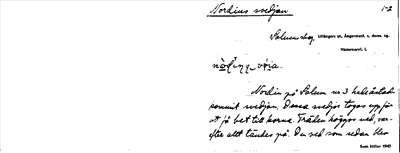 Nordins svedjan 1-2
Solum by Ullångers sn, Ångerml. s. doms. sg.
Västernorrl. l.
Nordin på Solum nr 3 hels
kommit svedjan. Denna svedja togs upp för
att få bet till korna. Träden höggos ned, var-
efter allt tändes på. Du ved som sedan blev
Sven Hiller 1947